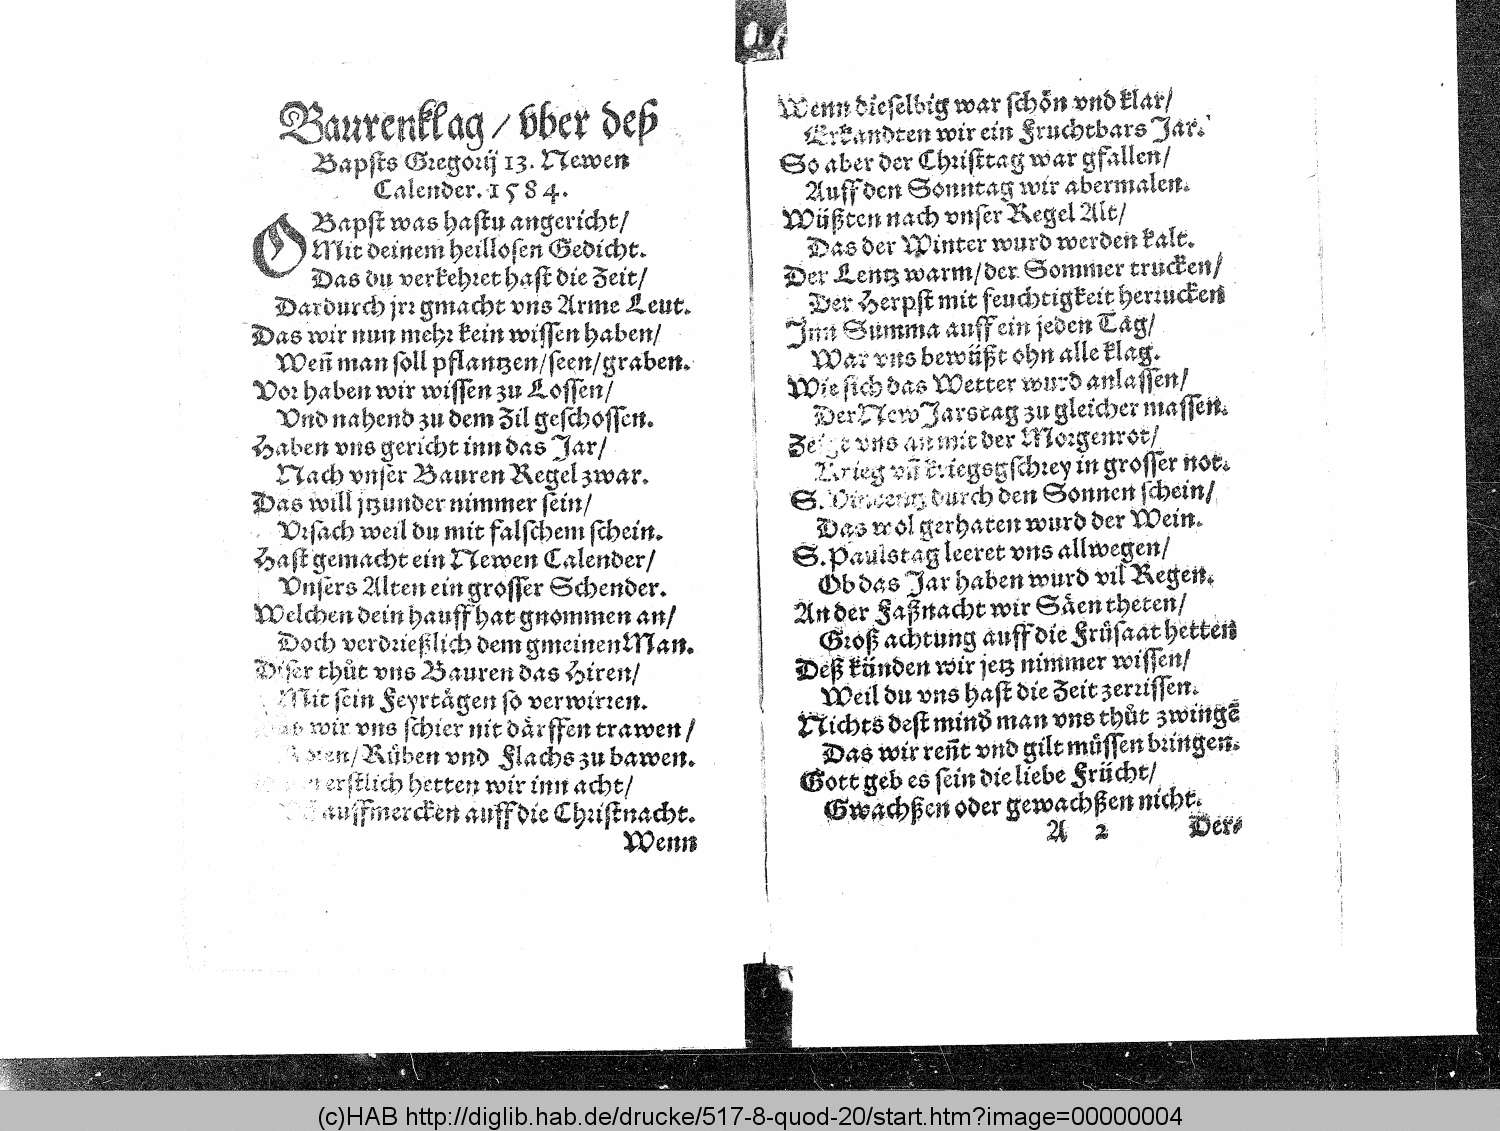 Baurenklag / vber deß
Bapsts Gregorij 13. Newen
Calender. 1584.
O Bapst was hastu angericht/
Mit deinem heillosen Gedicht.
Das du verkehret hast die Zeit/
Dardurch jrr gmacht vns Arme Leut.
Das wir nun mehr kein wissen haben/
Weñ man soll pflantzen/seen/graben.
Vor haben wir wissen zu Lossen/
Vnd nahend zu dem Zil geschossen.
Haben vns gericht inn das Jar/
Nach vnser Bauren Regel zwar.
Das will jtzunder nimmer sein/
Vrsach weil du mit falschem schein.
Hast gemacht ein Newen Calender/
Vnsers Alten ein grosser Schender.
Welchen dein hauff hat gnommen an/
Doch verdrießlich dem gmeinen Man.
Diser thůt vns Bauren das Hiren/
Mit sein Feyrtägen so verwirren.
wir vns schier nit därffen trawen/
Rüben vnd Flachs zu bawen.
erstlich hetten wir inn acht/
auffmercken auff die Christnacht.
Wenn
Wenn dieselbig war schön vnd klar/
Erkandten wir ein Fruchtbars Jar.
So aber der Christtag war gfallen/
Auff den Sonntag wir abermalen.
Wüßten nach vnser Regel Alt/
Das der Winter wurd werden kalt.
Der Lentz warm/der Sommer trucken/
Der Herpst mit feuchtigkeit herrucken
Inn Summa auff ein jeden Tag/
War vns bewüßt ohn alle klag.
Wie sich das Wetter wurd anlassen/
Der New Jarstag zu gleicher massen.
Zeigt vns an mit der Morgenrot/
Krieg vñ kriegsgschrey in grosser not.
S. Vincentz durch den Sonnen schein/
Das wol gerhaten wurd der Wein.
S. Paulstag leeret vns allwegen/
Ob das Jar haben wurd vil Regen.
An der Faßnacht wir Säen theten/
Groß achtung auff die Früsaat hetten
Deß künden wir jetz nimmer wissen/
Weil du vns hast die Zeit zerrissen.
Nichts dest mind̃ man vns thůt zwingẽ
Das wir reñt vnd gilt müssen bringen.
Gott geb es sein die liebe Frücht/
Gwachßen oder gewachßen nicht.
A 2 Der
(c)HAB http://diglib.hab.de/drucke/517-8-quod-20/start.htm?image=00000004